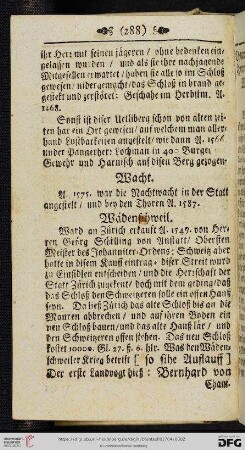 (288)
ihr Herr mit seinen jägeren / ohne bedencken ein-
gelassen wurden / und als sie ihre nachjagende
Mitgesellen erwartet / haben sie alle so im Schloß
gewesen / nidergemacht / das Schloß in brand ge-
gesteckt und zerstöret: Geschahe im Herbstm. A.
1268.
Sonst ist diser Uetliberg schon von alten zei-
ten har ein Ort gewesen / auf welchem man aller-
hand Lustbarkeiten angestelt / wie dann A. 1566
under Pannerherr Lochman in 400 Burger
Gewehr und Harnisch auf disen Berg gezogen.
Wacht.
A. 1575. war die Nachtwacht in der Statt
angestelt / und bey den Thoren A. 1587.
Wädenschweil.
Ward an Zürich erkauft A. 1549. von Her-
ren Georg Schilling von Canstatt / Obersten
Meister des Johanniter-Ordens; Schweiz aber
hatte in disem Kauff eintrag: diser Streit wurd
zu Einsidlen entscheiden / und die Herrschaft der
Statt Zürich zugekent / doch mit dem geding / daß
das Schloß den Schweitzeren solle ein offen Hauß
seyn. Da ließ Zürich das alte Schloß biß an die
Mauren abbrechen / und auf ihren Boden ein
neu Schloß bauen / und das alte Hauß lär / und
den Schweitzeren offen stehen. Das neu Schloß
kostet 10000. Gl. 37. ß. 6. hlr. Was den Wäden-
schweiler Krieg betrift [ so sihe Auslauff ]
Der erste Landvogt hieß: Bernhard von
Cham.